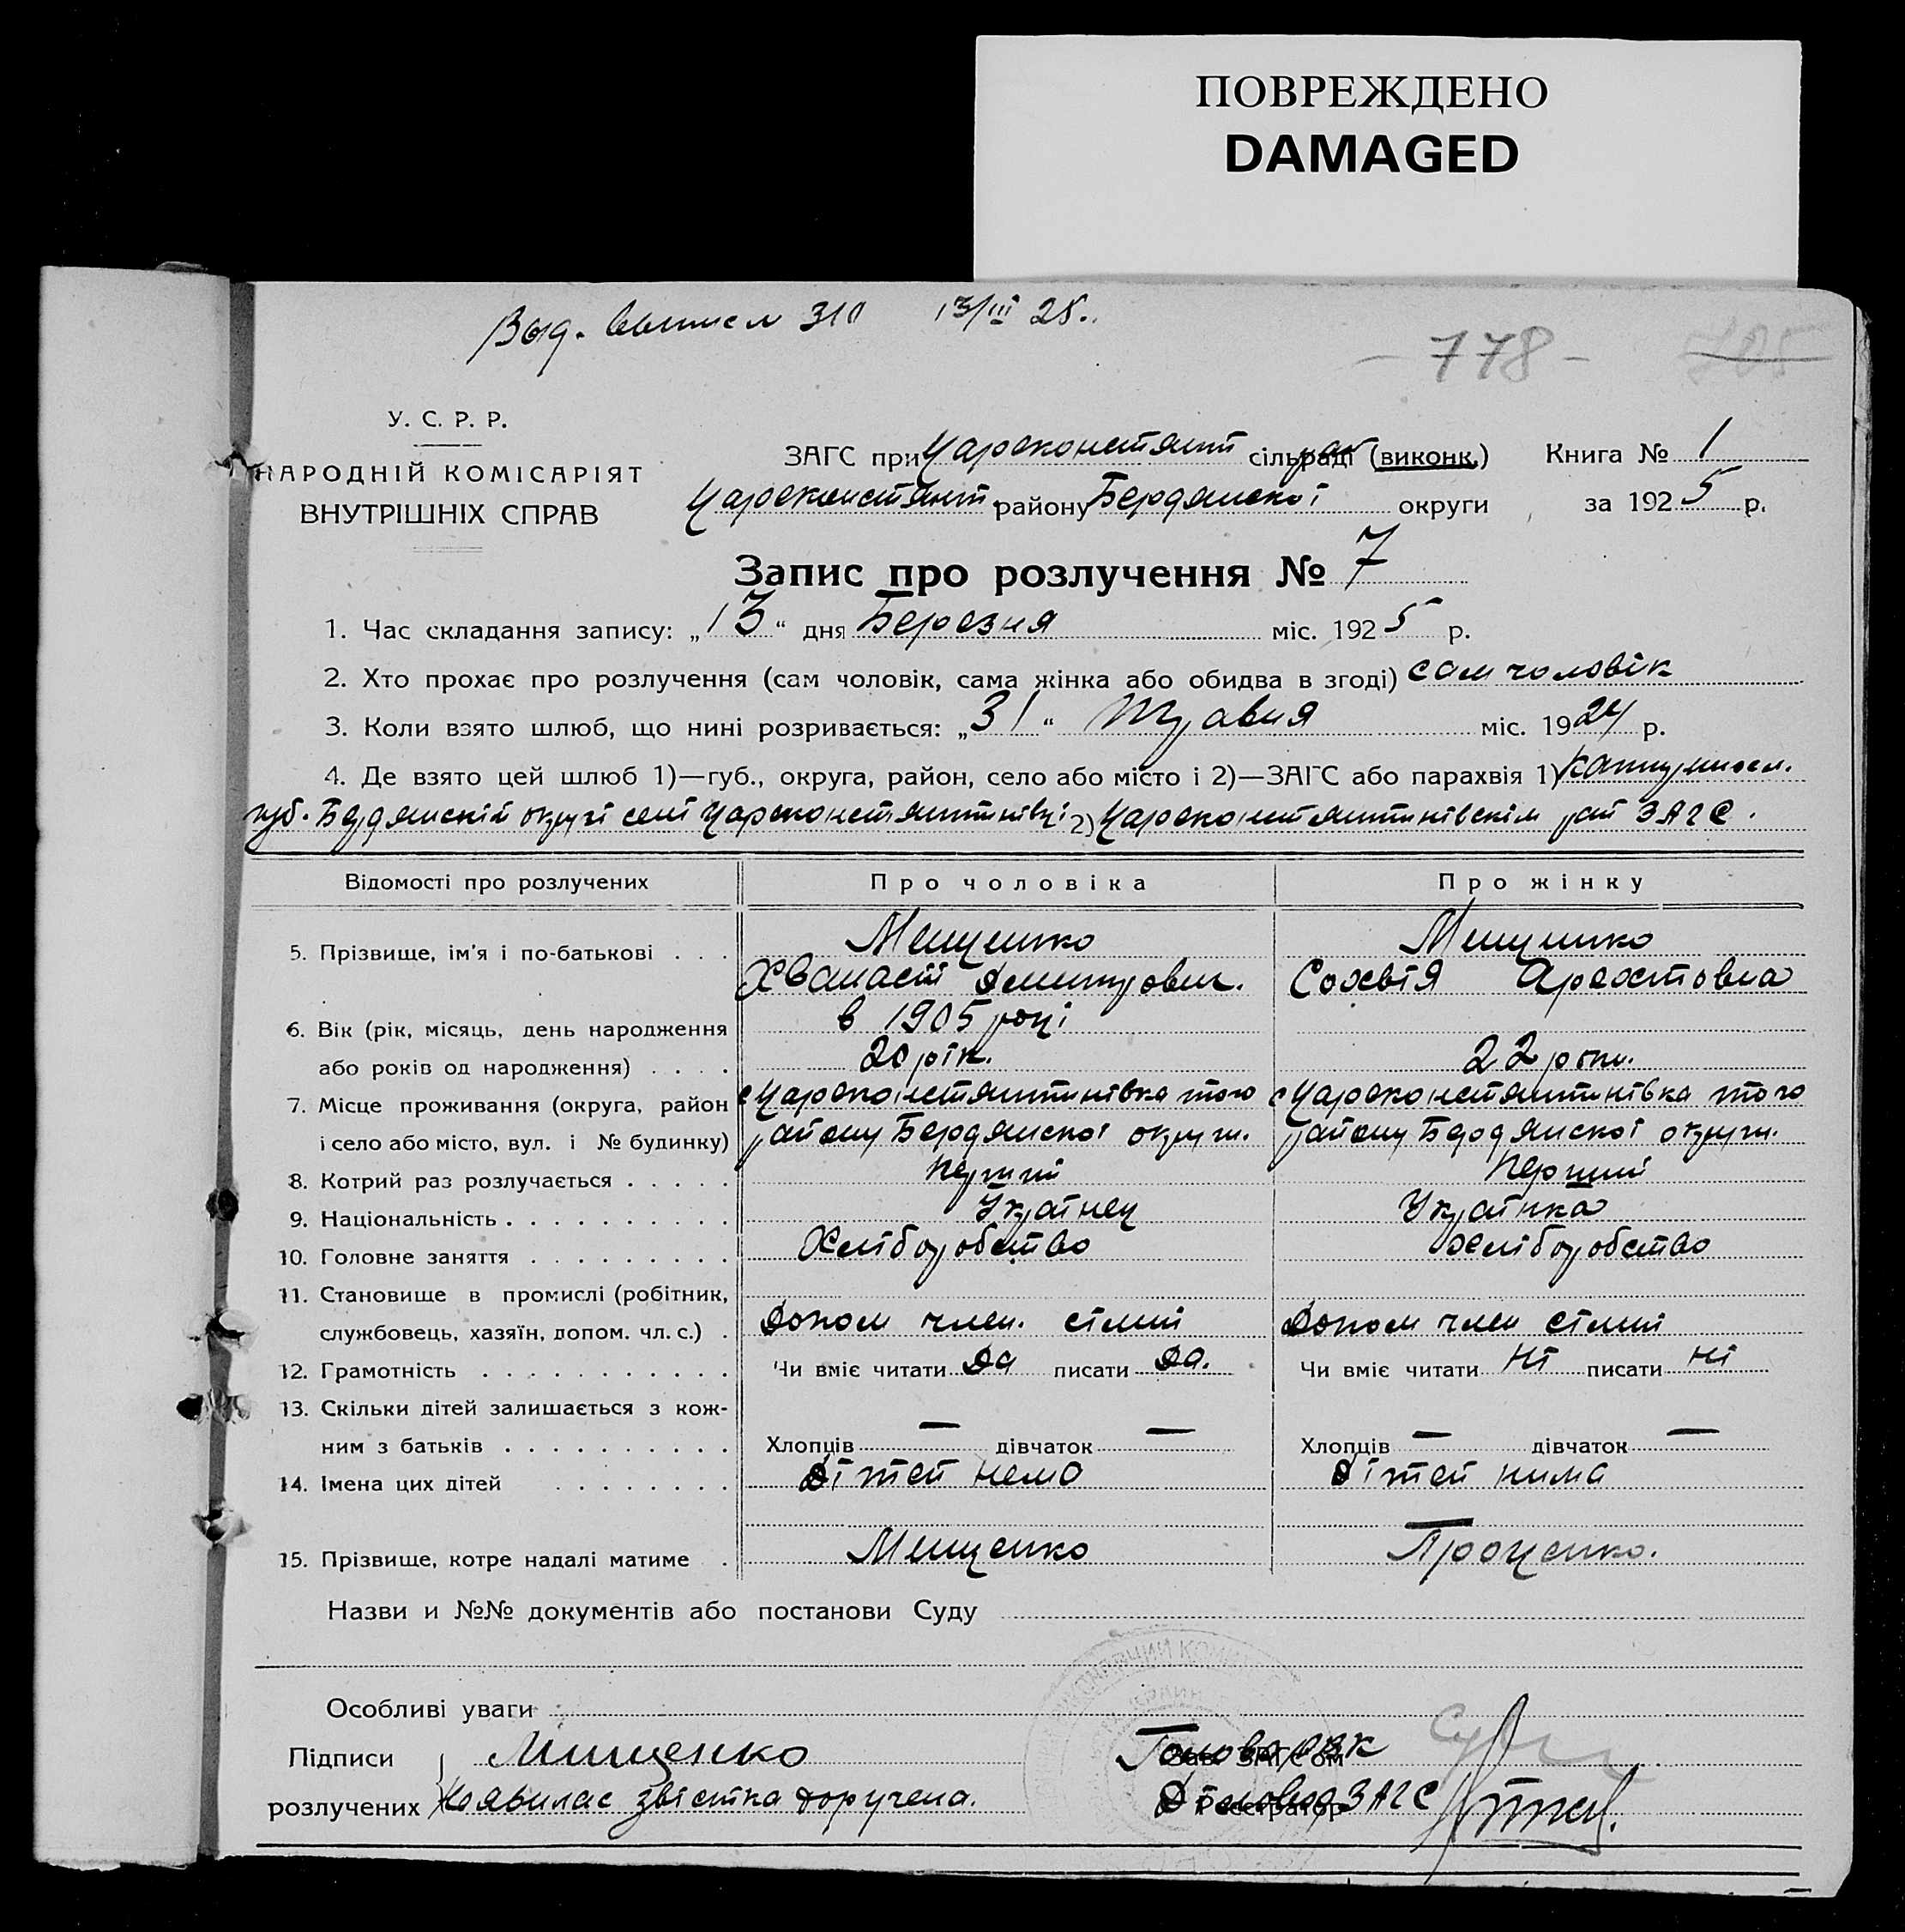 ПОВРЕЖДЕНО
DAMAGED
Выд. выписи 310 13/III 25.
- 778 - 705
У. С. Р. Р.
НАРОДНІЙ КОМІСАРІЯТ
ВНУТРІШНІХ СПРАВ
ЗАГС при Цареконстянт сільраді (виконк.) Книга № 1
Цареконстянт. району Бердянскоі округи за 1925 р.
Запис про розлучення № 7
1. Час складання запису: „13“ дня Березня міс. 1925 р.
2. Хто прохає про розлучення (сам чоловік, сама жінка або обидва в згоді) сам чоловік
3. Коли взято шлюб, що нині розривається: „31“ Травня міс. 1924 р.
4. Де взято цей шлюб 1)—губ., округа, район, село або місто і 2)—ЗАГС або парахвія 1)
губ. Бердянскій окрузі селі Цареконстянтинівці 2) Цареконстянтинівскім рай ЗАГС.
Відомості про розлучених Про чоловіка Про жінку
5. Прізвище, ім'я і по-батькові . . . Мещенко Мещенко
Хванасій Дмитрович. Сохвія Арехтовна
6. Вік (рік, місяць, день народження в 1905 році
або років од народження) . . . . 20 рік. 22 роки.
7. Місце проживання (округа, район с Цареконстянтинівка того с Цареконстянтинівка того
і село або місто, вул. і № будинку) району Бердянскоі округи. району Бердянскоі округи.
8. Котрий раз розлучається . . . . . Перший Перший
9. Національність . . . . . . . . . . Українец Українка
10. Головне заняття . . . . . . . . . Хліборобство Хліборобство
11. Становище в промислі (робітник,
службовець, хазяїн, допом. чл. с.) . Допом член. сімиї Допом член сімиї
12. Грамотність . . . . . . . . . . . Чи вміє читати Да писати Да. Чи вміє читати Ні писати Ні
13. Скільки дітей залишається з кож-
ним з батьків . . . . . . . . . . Хлопців — дівчаток — Хлопців — дівчаток —
14. Імена цих дітей . . . . . . . . Дітей нема Дітей нима
15. Прізвище, котре надалі матиме . Мещенко Проценко.
Назви и №№ документів або постанови Суду
Особливі уваги
Підписи Мищенко Голова РВК
Зав. ЗАГС'ом
розлучених Неявилас звістка доручена. Діловод ЗАГС
Реєстратор